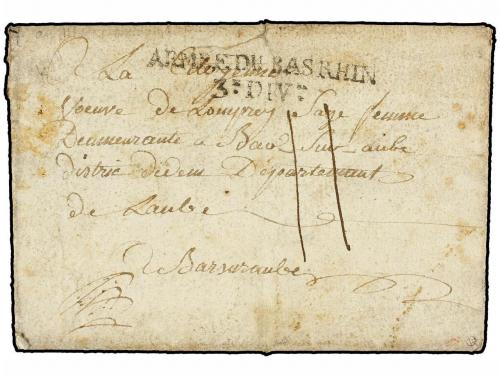 ARMÉE DU BAS RHIN
3e DIVon
A La Citoyenne
Veuve de Sage femme
Demeurante a Bar Sur aube
district dudem Département
de Laube
A Barsuraube
11